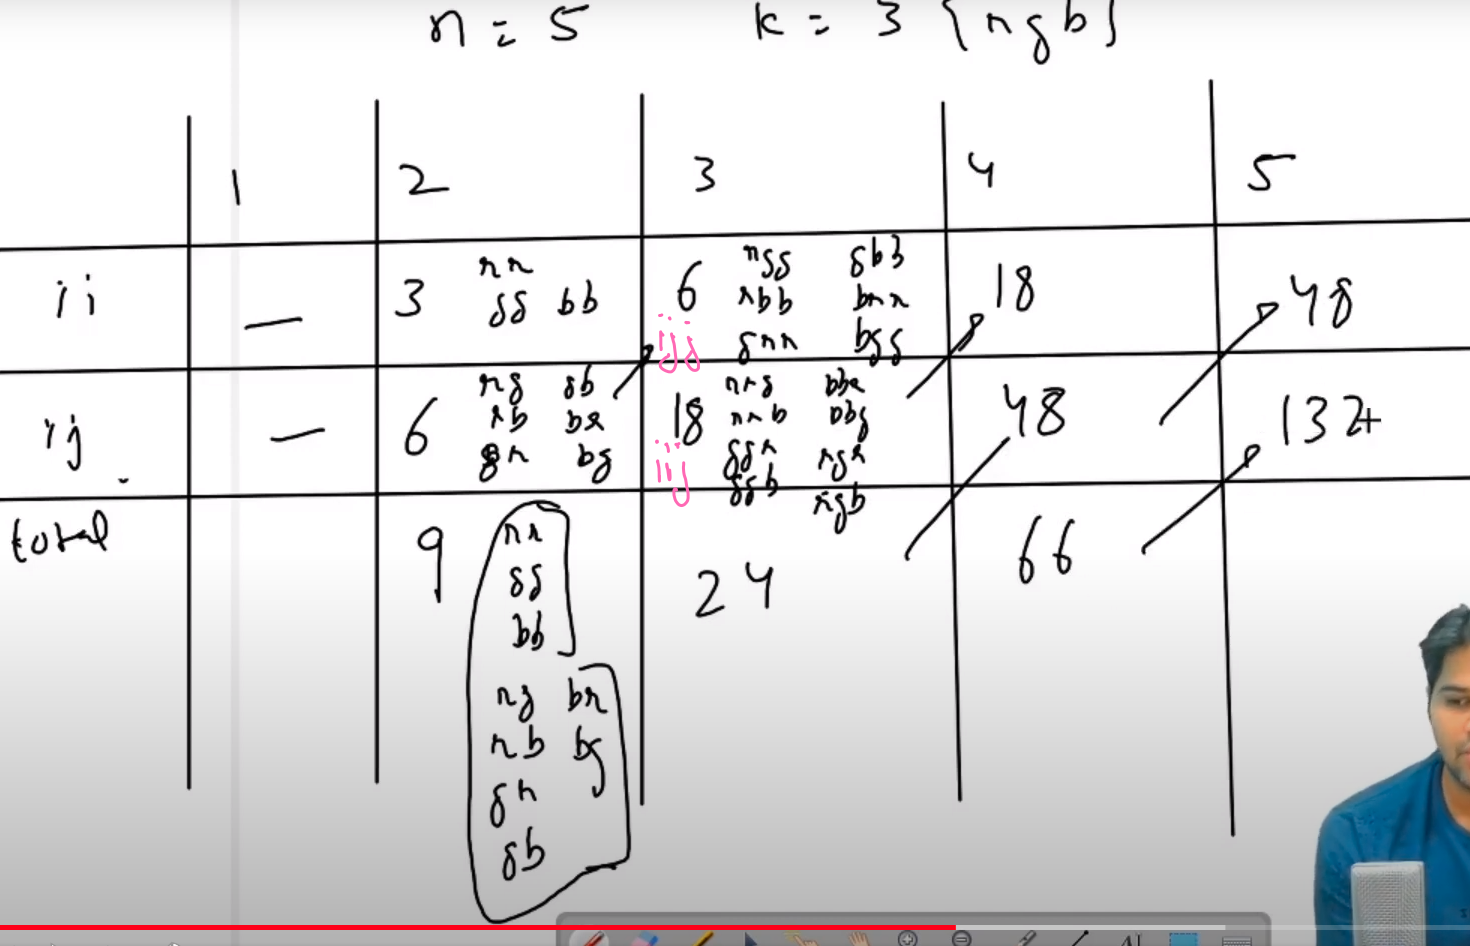 n = 5 k = 3 {rgb}
1 2 3 4 5
ii — 3 6 18 48
rr
gg bb
rgg gbb
rbb brr
grr bgg
ijj
ij — 6 18 48 132
rg gb
rb br
gr bg
rrg bbr
rrb bbg
ggr rgr
ggb rgb
iij
total 9 24 66
rr
gg
bb
rg br
rb bg
gr
gb